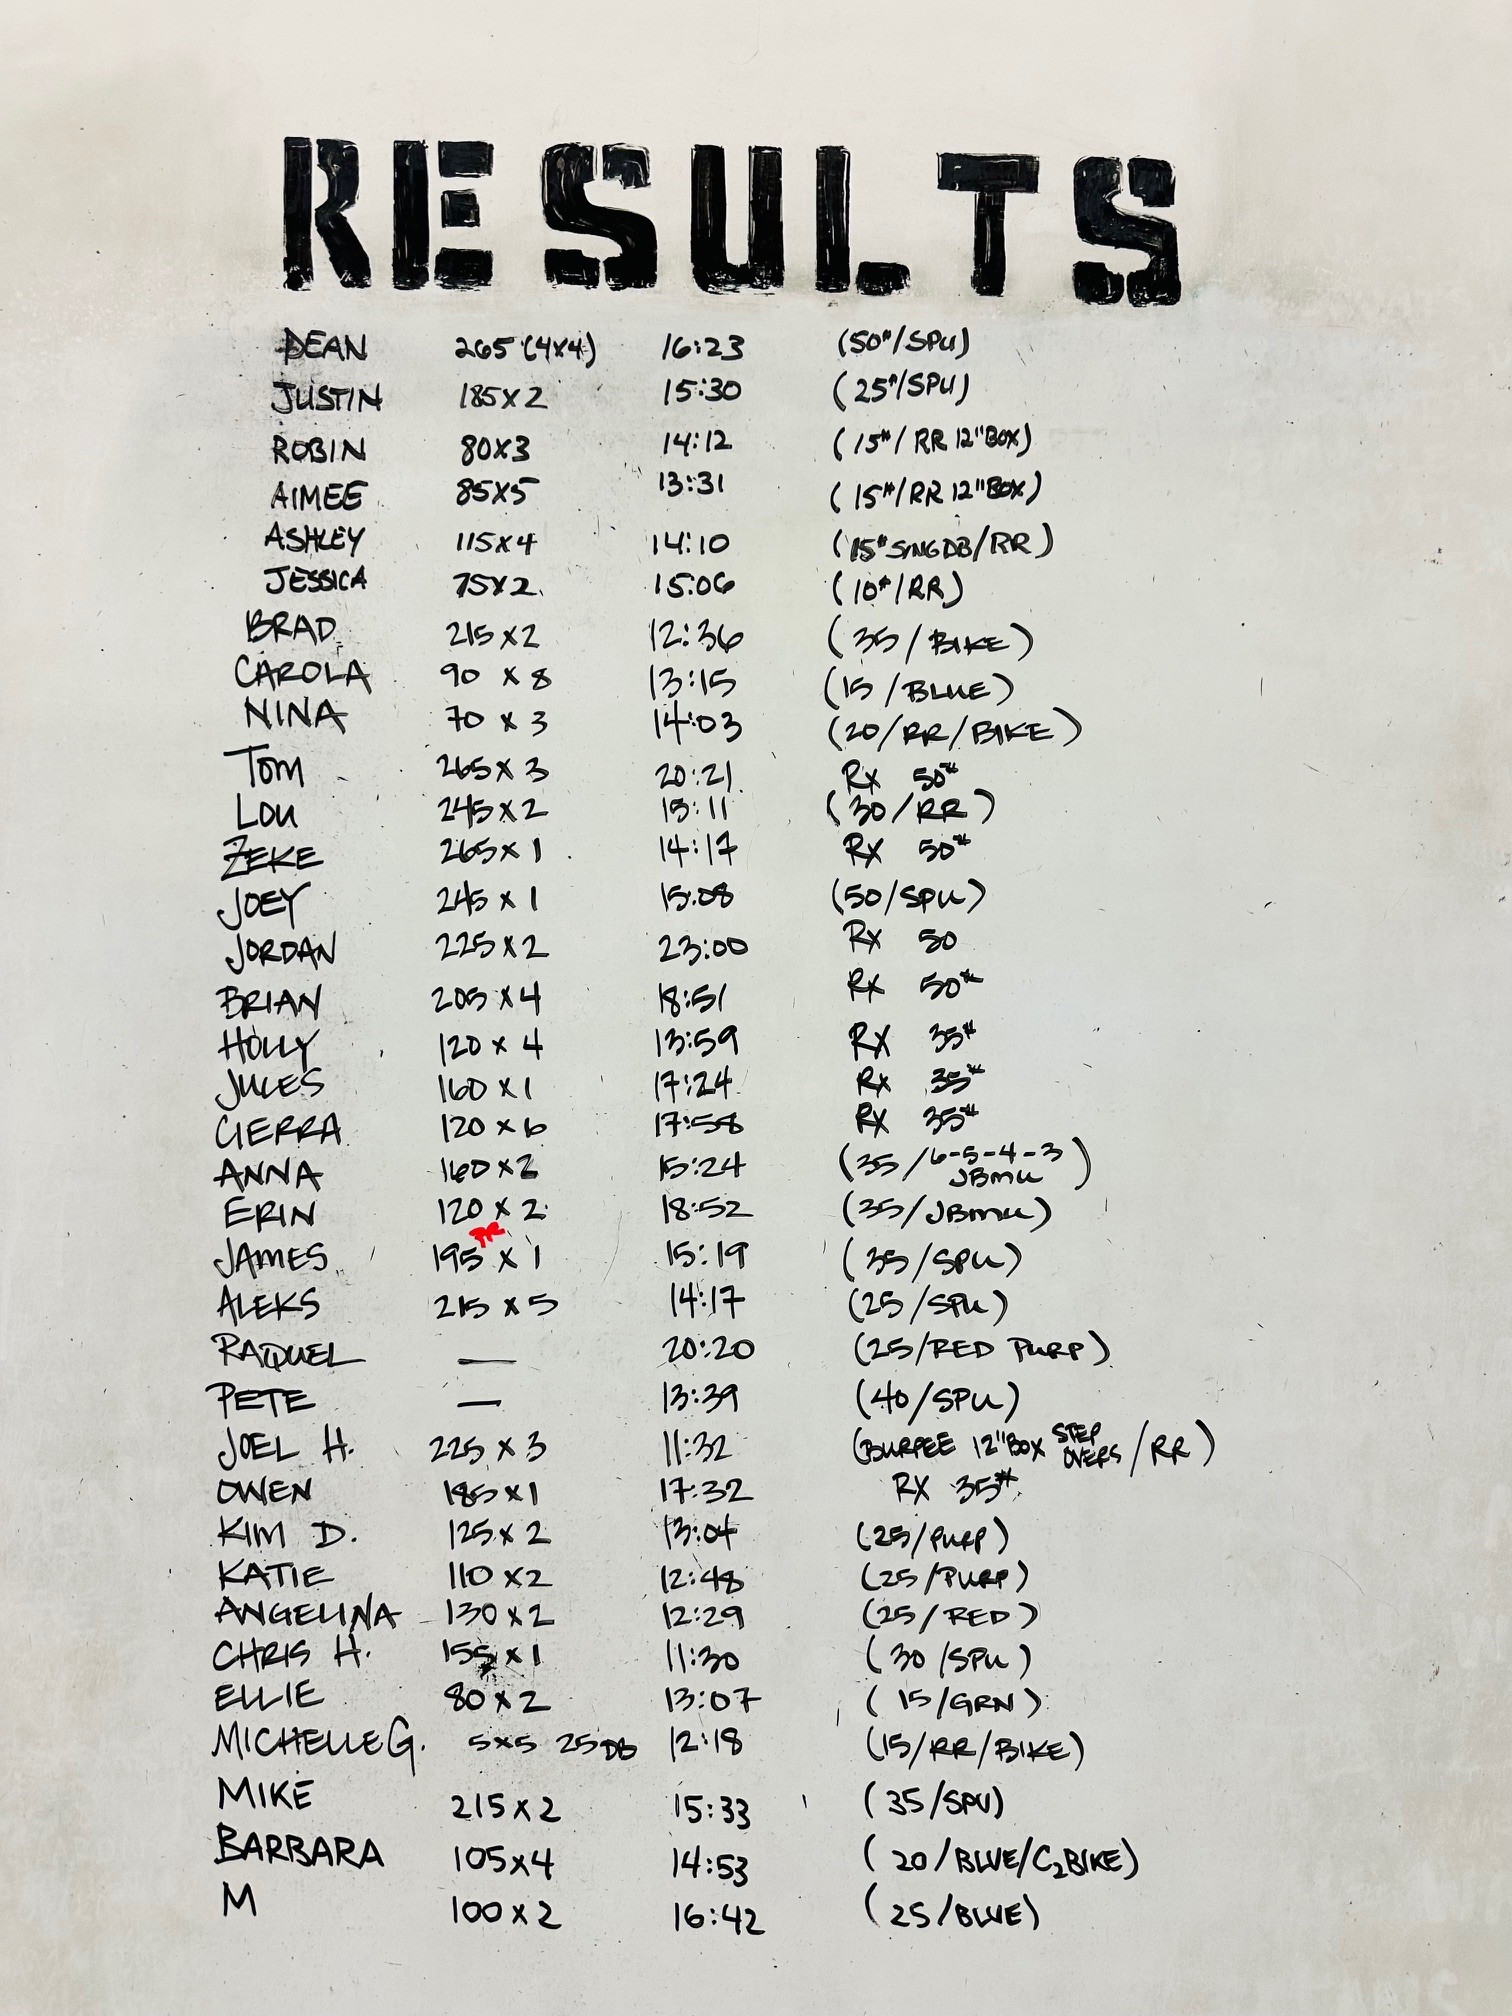 RESULTS
DEAN 265 (4x4) 16:23 (50#/SPU)
JUSTIN 185x2 15:30 (25#/SPU)
ROBIN 80x3 14:12 (15#/RR 12"BOX)
AIMEE 85x5 13:31 (15#/RR 12"BOX)
ASHLEY 115x4 14:10 (15# SINGDB/RR)
JESSICA 75x2 15:06 (10#/RR)
BRAD 215x2 12:36 (35/BIKE)
CAROLA 90 x 8 13:15 (15/BLUE)
NINA 70 x 3 14:03 (20/RR/BIKE)
TOM 265x3 20:21 RX 50#
LOU 245x2 15:11 (30/RR)
ZEKE 265x1 14:17 RX 50#
JOEY 245x1 15:08 (50/SPU)
JORDAN 225x2 23:00 RX 50
BRIAN 205x4 18:51 RX 50#
HOLLY 120x4 13:59 RX 35#
JULES 160x1 17:24 RX 35#
CIERRA 120x6 17:58 RX 35#
ANNA 160x2 15:24 (35/6-5-4-3 JBMU)
ERIN 120x2 18:52 (35/JBMU)
JAMES 195 PR x 1 15:19 (35/SPU)
ALEKS 215 x 5 14:17 (25/SPU)
RAQUEL — 20:20 (25/RED PURP)
PETE — 13:39 (40/SPU)
JOEL H. 225 x 3 11:32 (BURPEE 12"BOX STEP OVERS/RR)
OWEN 185x1 17:32 RX 35#
KIM D. 125x2 13:04 (25/PURP)
KATIE 110x2 12:48 (25/PURP)
ANGELINA 130x2 12:29 (25/RED)
CHRIS H. 155x1 11:30 (30/SPU)
ELLIE 80x2 13:07 (15/GRN)
MICHELLE G. 5x5 25DB 12:18 (15/RR/BIKE)
MIKE 215x2 15:33 (35/SPU)
BARBARA 105x4 14:53 (20/BLUE/C2BIKE)
M 100x2 16:42 (25/BLUE)